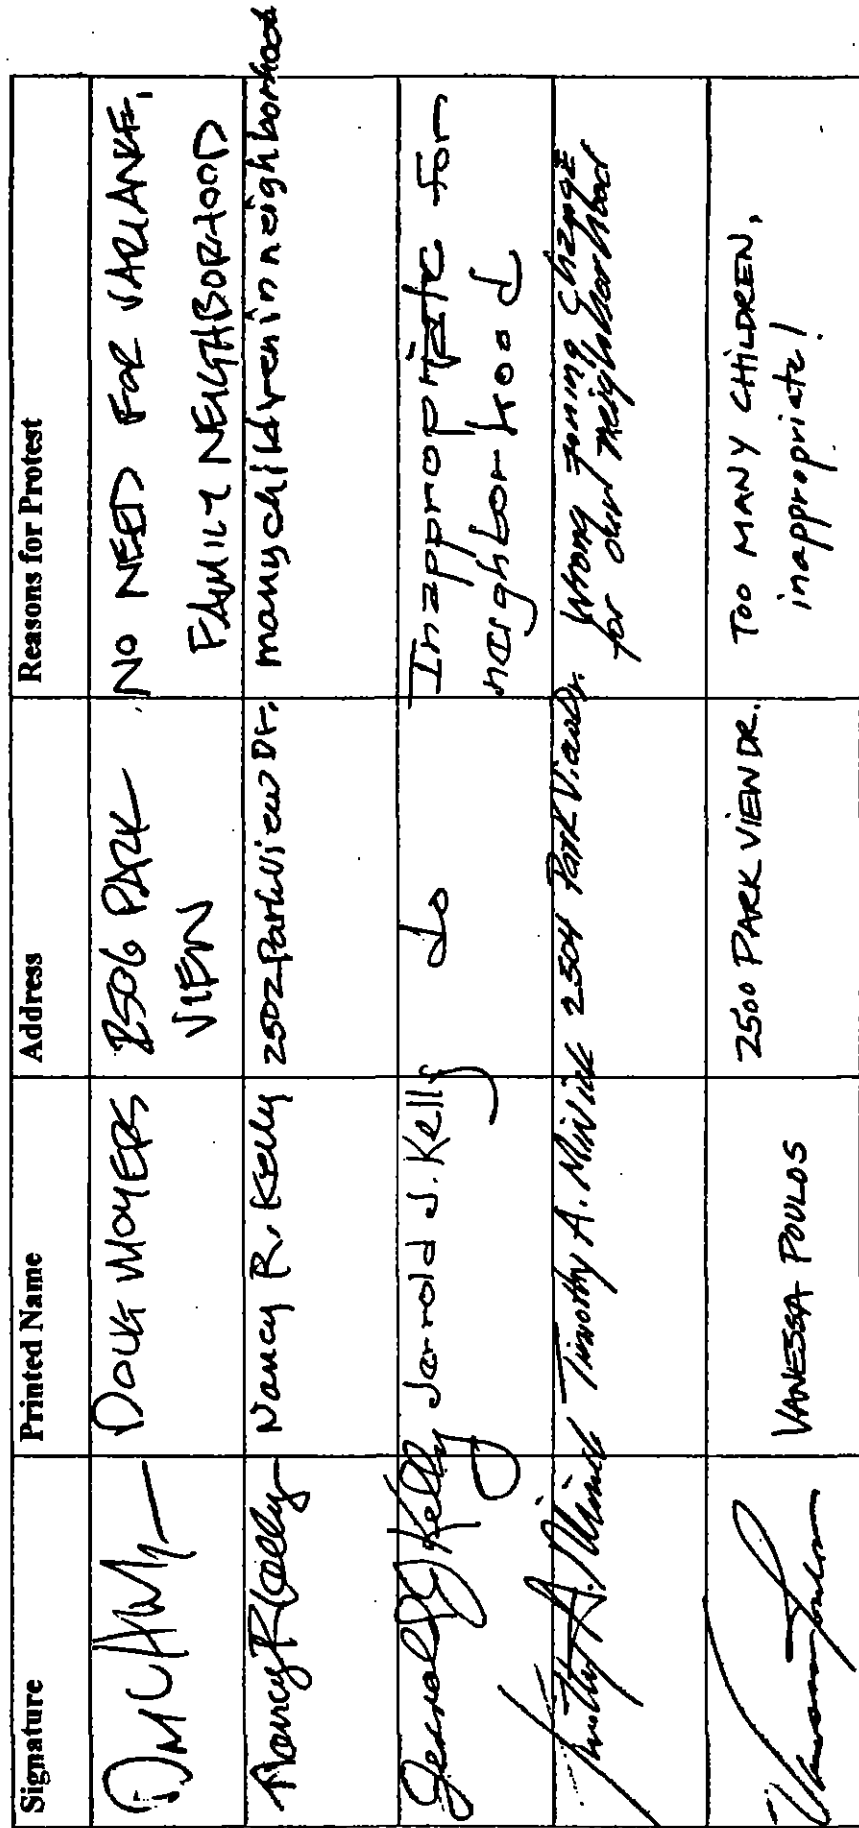 Signature Printed Name Address Reasons for Protest
DOUG MOYERS 2506 PARK NO NEED FOR VARIANCE,
VIEW FAMILY NEIGHBORHOOD
Nancy R Kelly Nancy R. Kelly 2502 Park View Dr. many children in neighborhood
Jerrold J Kelly Jerrold J. Kelly do Inappropriate for
neighborhood
Timothy A. Timothy A. 2504 Park View Dr. Wrong zoning change
for our neighborhood
Vanessa Poulos VANESSA POULOS 2500 PARK VIEW DR. TOO MANY CHILDREN,
inappropriate!